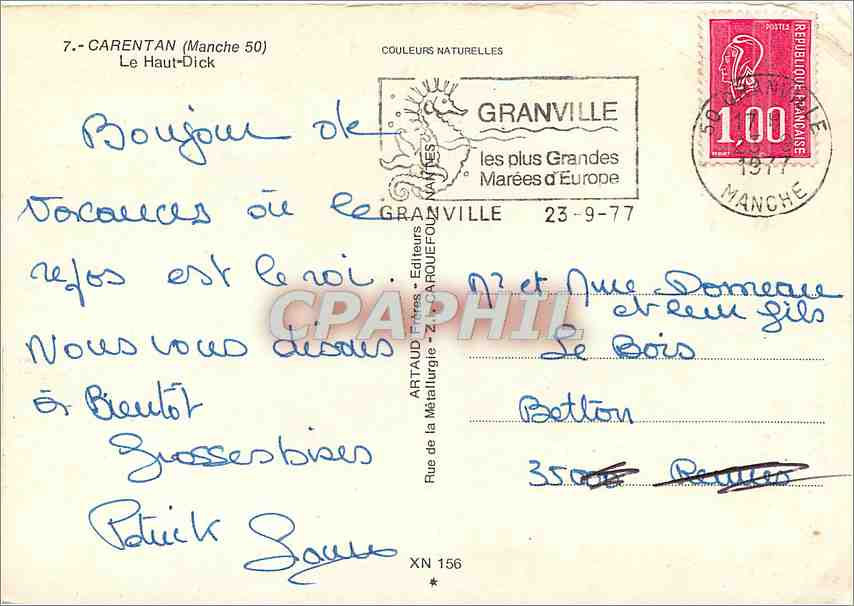 7.- CARENTAN (Manche 50)
Le Haut-Dick
COULEURS NATURELLES
POSTES
REPUBLIQUE FRANÇAISE
1,00
50 GRANVILLE
1977
MANCHE
GRANVILLE
les plus Grandes
Marées d'Europe
GRANVILLE 23-9-77
Bonjour de
vacances où le
repos est le roi.
Nous vous disons
à Bientôt
Grosses bises
Patrick
ARTAUD Frères - Editeurs
Rue de la Métallurgie - Z.I. CARQUEFOU NANTES
CPAPHIL
Mr et Mme Domeau
et leur fils
Le Bois
Betton
35000 Rennes
XN 156
*